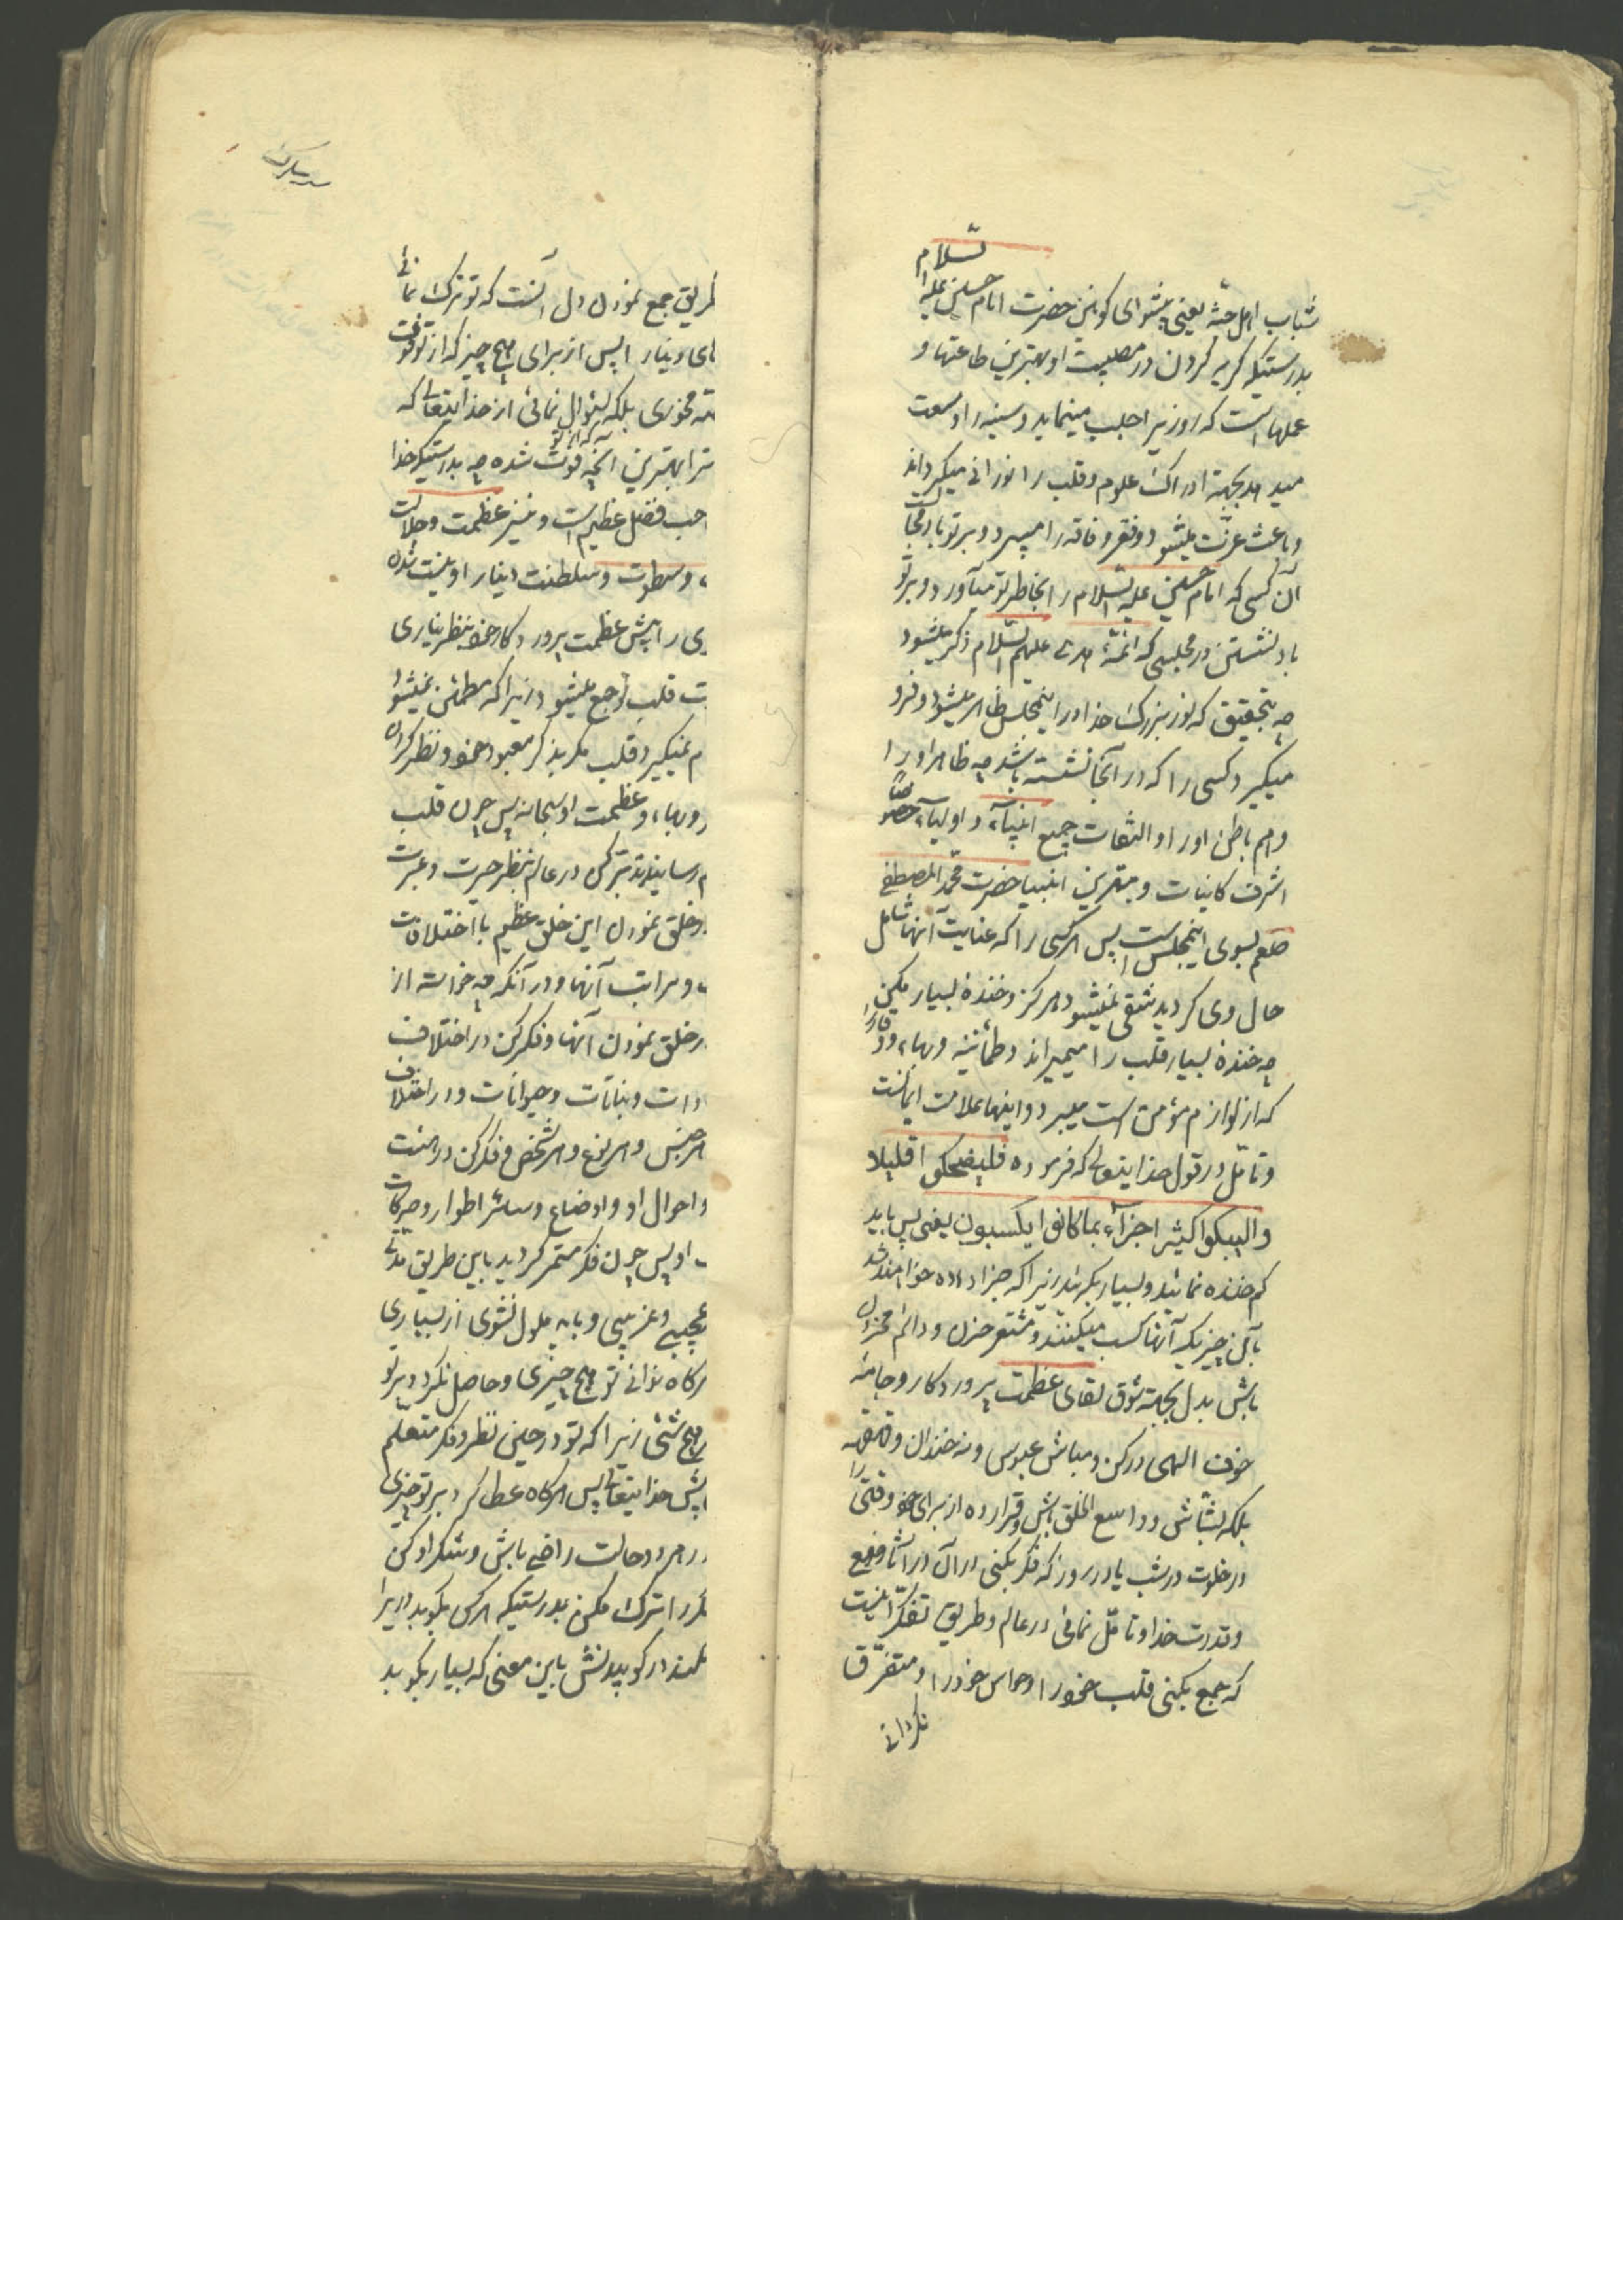 شباب اهل جنة یعنی پیشوای کونین حضرت امام حسین علیه السلام
بدرستیکه گریه کردن در مصیبت او بهترین طاعتها و
عملها است که روزیرا جلب مینماید و سینه را وسعت
میدهد بجهة ادراک علوم و قلب را نورانی میگرداند
و باعث عزت میشود و فقر و فاقه را میبرد و بر تو باد
آن کسی که امام حسین علیه السلام را بخاطر تو میآورد و بر تو
باد نشستن در مجلسی که ائمه هدی علیهم السلام ذکر میشود
چه بتحقیق که نور بزرگ خدا در اینمجلس ظاهر میشود و فرو
میگیرد کسی را که در آنجا نشسته باشد چه ظاهر او را
و هم باطن او را و التفات جمیع انبیآء و اولیآء خصوصا
اشرف کاینات و بهترین انبیا حضرت محمد المصطفی
صلعم بسوی اینمجلس است پس هر کسی را که عنایت آنها شامل
حال وی گردید شقی نمیشود هرگز و خندهٔ بسیار مکن
چه خندهٔ بسیار قلب را میمیراند و طمأنینه و بهاء و وقار را
که از لوازم مؤمن است میبرد و اینها علامت ایمانست
و تأمل در قول خدایتعالی که فرموده فلیضحکوا قلیلا
و الیبکوا کثیرا جزآء بما کانوا یکسبون یعنی پس باید
کم خنده نمائید و بسیار بگریید زیرا که جزا داده خواهند شد
بآن چیزیکه آنها کسب میکنند و مشعر حزن و دائم محزون
باش بدل بجهة شوق لقای عظمت پروردگار و جامهٔ
خوف الهی در کن و مباش عبوس و نه خندان و قهقهه
بلکه بشاش و واسع الخلق باش و قرار ده از برای خود وقتی را
در خلوت در شب یا در روز که فکر بکنی در آن در آثار صنع
و قدرت خدا و تأمل نمائی در عالم و طریق تفکر اینست
که جمع بکنی قلب خود را و حواس خود را و متفرق
نگردانی
طریق جمع نمودن دل آنست که تو ترک نمائی
های دینار ا پس از برای هیچ چیز که از تو فوت
غصه مخوری بلکه سئوال نمائی از خدایتعالی که
ترا بهترین آنچه که از تو فوت شده چه بدرستیکه خدا
احب فضل عظیم است و نیز عظمت و جلالت
و سطوت و سلطنت
ی را پیش عظمت پروردگار خود بنظر نیاری
ت قلب تو جمع میشود زیرا که مطمئن نمیشود
م نمیگیرد قلب مگر بذکر معبود خود و نظر کردن
و بهاء و عظمت او سبحانه پس چون قلب
م رسانید تدبر کن در عالم بنظر حیرت و عبرت
و خلق نمودن این خلق عظیم با اختلافات
و مراتب آنها و در آنکه چه خواسته از
در خلق نمودن آنها و فکر کن در اختلاف
دات و نباتات و حیوانات و در اختلاف
هر جنس و هر نوع و هر شخص و فکر کن در هیئت
و احوال او و اوضاع و سائر اطوار و حرکات
او پس چون فکر مستمر گردید باین طریق مدتی
عجیبی و غریبی و باید ملول نشوی از بسیاری
هرگاه ندانی تو هیچ چیزی و حاصل نگردد بر تو
هیچ شئی زیرا که تو در حین نظر و فکر متعلم
پیش خدایتعالی پس هرگاه عطا کرد بر تو چیزی
در هر دو حالت راضی باش و شکر او کن
فکر را ترک مکن بدرستیکه هر کس بکوبد در یرا
کوبیدنش باین معنی که بسیار بکوبد